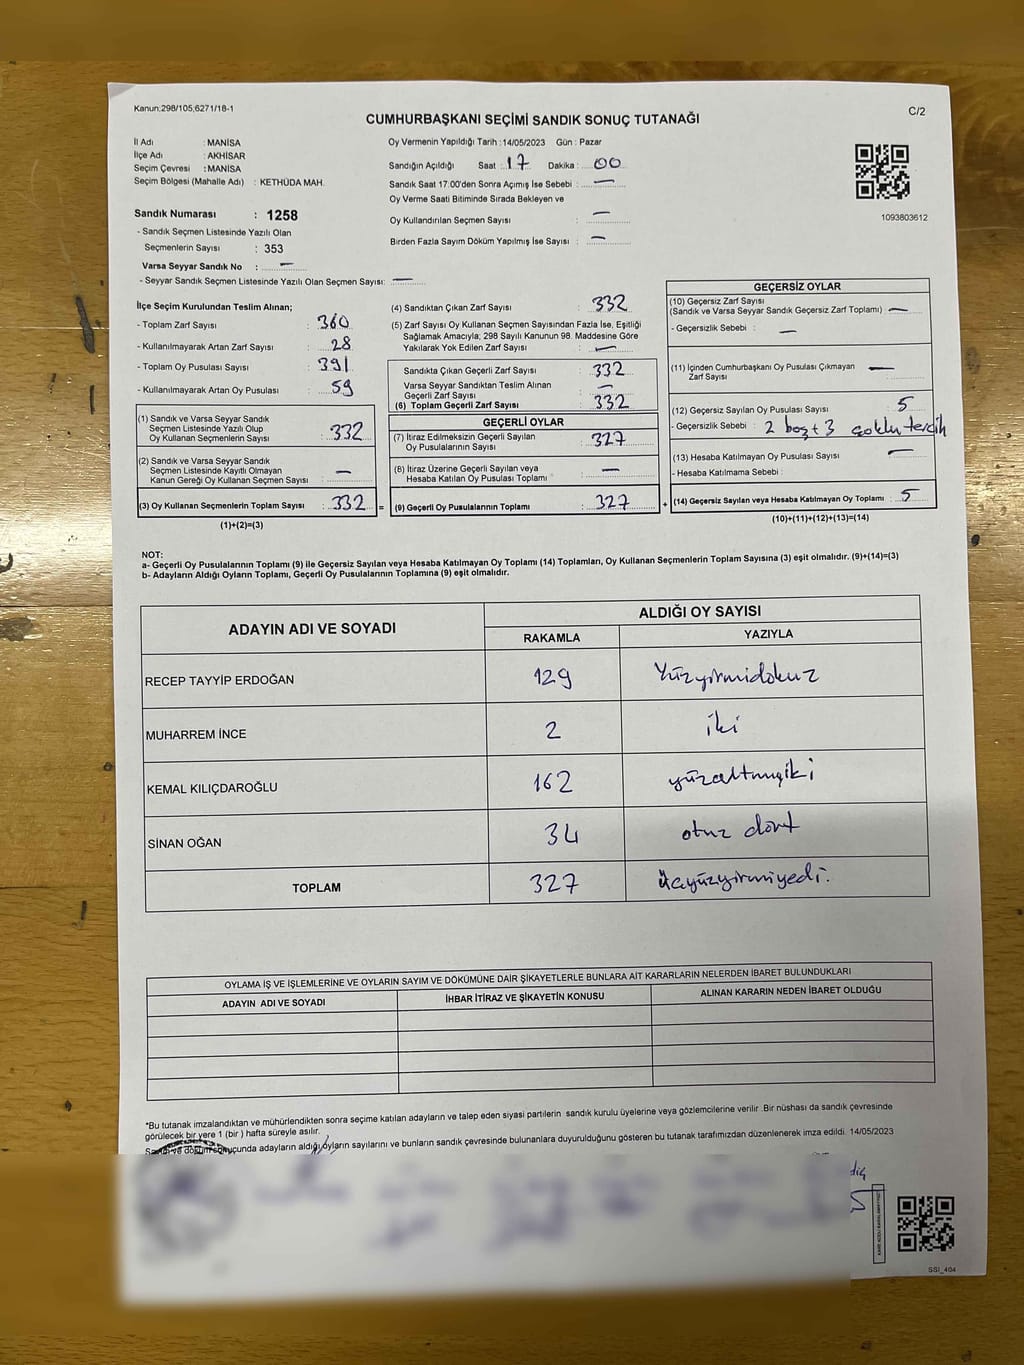 Kanun:298/105;6271/18-1
C/2
CUMHURBAŞKANI SEÇİMİ SANDIK SONUÇ TUTANAĞI
İl Adı : MANİSA
İlçe Adı : AKHİSAR
Seçim Çevresi : MANİSA
Seçim Bölgesi (Mahalle Adı) : KETHÜDA MAH.
Sandık Numarası : 1258
- Sandık Seçmen Listesinde Yazılı Olan
Seçmenlerin Sayısı : 353
Varsa Seyyar Sandık No : —
- Seyyar Sandık Seçmen Listesinde Yazılı Olan Seçmen Sayısı: —
Oy Vermenin Yapıldığı Tarih : 14/05/2023 Gün : Pazar
Sandığın Açıldığı Saat : 17 Dakika : 00
Sandık Saat 17:00'den Sonra Açımış İse Sebebi : —
Oy Verme Saati Bitiminde Sırada Bekleyen ve
Oy Kullandırılan Seçmen Sayısı : —
Birden Fazla Sayım Döküm Yapılmış İse Sayısı : —
1093803612
İlçe Seçim Kurulundan Teslim Alınan;
- Toplam Zarf Sayısı : 360
- Kullanılmayarak Artan Zarf Sayısı : 28
- Toplam Oy Pusulası Sayısı : 391
- Kullanılmayarak Artan Oy Pusulası : 59
(1) Sandık ve Varsa Seyyar Sandık
Seçmen Listesinde Yazılı Olup
Oy Kullanan Seçmenlerin Sayısı : 332
(2) Sandık ve Varsa Seyyar Sandık
Seçmen Listesinde Kayıtlı Olmayan
Kanun Gereği Oy Kullanan Seçmen Sayısı : —
(3) Oy Kullanan Seçmenlerin Toplam Sayısı : 332 =
(1)+(2)=(3)
(4) Sandıktan Çıkan Zarf Sayısı : 332
(5) Zarf Sayısı Oy Kullanan Seçmen Sayısından Fazla İse, Eşitliği
Sağlamak Amacıyla; 298 Sayılı Kanunun 98. Maddesine Göre
Yakılarak Yok Edilen Zarf Sayısı : —
Sandıkta Çıkan Geçerli Zarf Sayısı : 332
Varsa Seyyar Sandıktan Teslim Alınan
Geçerli Zarf Sayısı : —
(6) Toplam Geçerli Zarf Sayısı : 332
GEÇERLİ OYLAR
(7) İtiraz Edilmeksizin Geçerli Sayılan
Oy Pusulalarının Sayısı : 327
(8) İtiraz Üzerine Geçerli Sayılan veya
Hesaba Katılan Oy Pusulası Toplamı : —
(9) Geçerli Oy Pusulalarının Toplamı : 327 +
GEÇERSİZ OYLAR
(10) Geçersiz Zarf Sayısı
(Sandık ve Varsa Seyyar Sandık Geçersiz Zarf Toplamı) : —
- Geçersizlik Sebebi : —
(11) İçinden Cumhurbaşkanı Oy Pusulası Çıkmayan
Zarf Sayısı : —
(12) Geçersiz Sayılan Oy Pusulası Sayısı : 5
- Geçersizlik Sebebi : 2 boş + 3 çoklu tercih
(13) Hesaba Katılmayan Oy Pusulası Sayısı : —
- Hesaba Katılmama Sebebi :
(14) Geçersiz Sayılan veya Hesaba Katılmayan Oy Toplamı : 5
(10)+(11)+(12)+(13)=(14)
NOT:
a- Geçerli Oy Pusulalarının Toplamı (9) ile Geçersiz Sayılan veya Hesaba Katılmayan Oy Toplamı (14) Toplamları, Oy Kullanan Seçmenlerin Toplam Sayısına (3) eşit olmalıdır. (9)+(14)=(3)
b- Adayların Aldığı Oyların Toplamı, Geçerli Oy Pusulalarının Toplamına (9) eşit olmalıdır.
ADAYIN ADI VE SOYADI
ALDIĞI OY SAYISI
RAKAMLA YAZIYLA
RECEP TAYYİP ERDOĞAN 129 Yüzyirmidokuz
MUHARREM İNCE 2 iki
KEMAL KILIÇDAROĞLU 162 yüzaltmışiki
SİNAN OĞAN 34 otuz dört
TOPLAM 327 üçyüzyirmiyedi.
OYLAMA İŞ VE İŞLEMLERİNE VE OYLARIN SAYIM VE DÖKÜMÜNE DAİR ŞİKAYETLERLE BUNLARA AİT KARARLARIN NELERDEN İBARET BULUNDUKLARI
ADAYIN ADI VE SOYADI İHBAR İTİRAZ VE ŞİKAYETİN KONUSU ALINAN KARARIN NEDEN İBARET OLDUĞU
*Bu tutanak imzalandıktan ve mühürlendikten sonra seçime katılan adayların ve talep eden siyasi partilerin sandık kurulu üyelerine veya gözlemcilerine verilir .Bir nüshası da sandık çevresinde
görülecek bir yere 1 (bir ) hafta süreyle asılır.
Sayım ve döküm sonucunda adayların aldığı oyların sayılarını ve bunların sandık çevresinde bulunanlara duyurulduğunu gösteren bu tutanak tarafımızdan düzenlenerek imza edildi. 14/05/2023
SSI_404